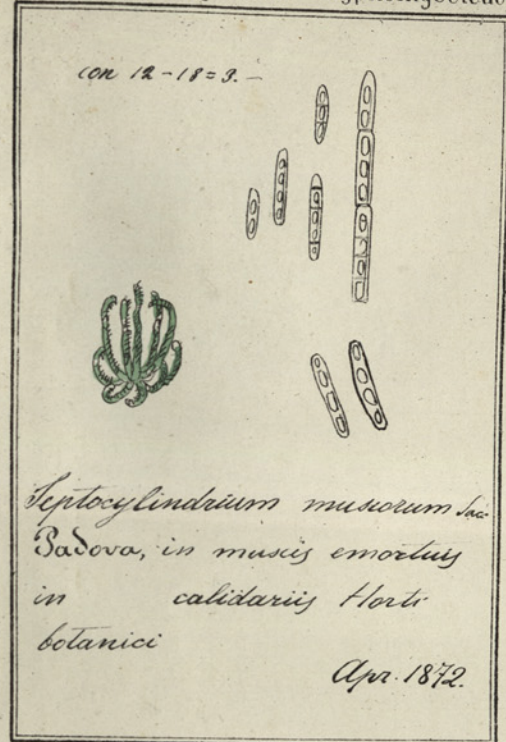 con 12-18=3.-
Septocylindrium muscorum Sac.
Padova, in muscis emortuis
in calidariis Horti
botanici
Apr. 1872.